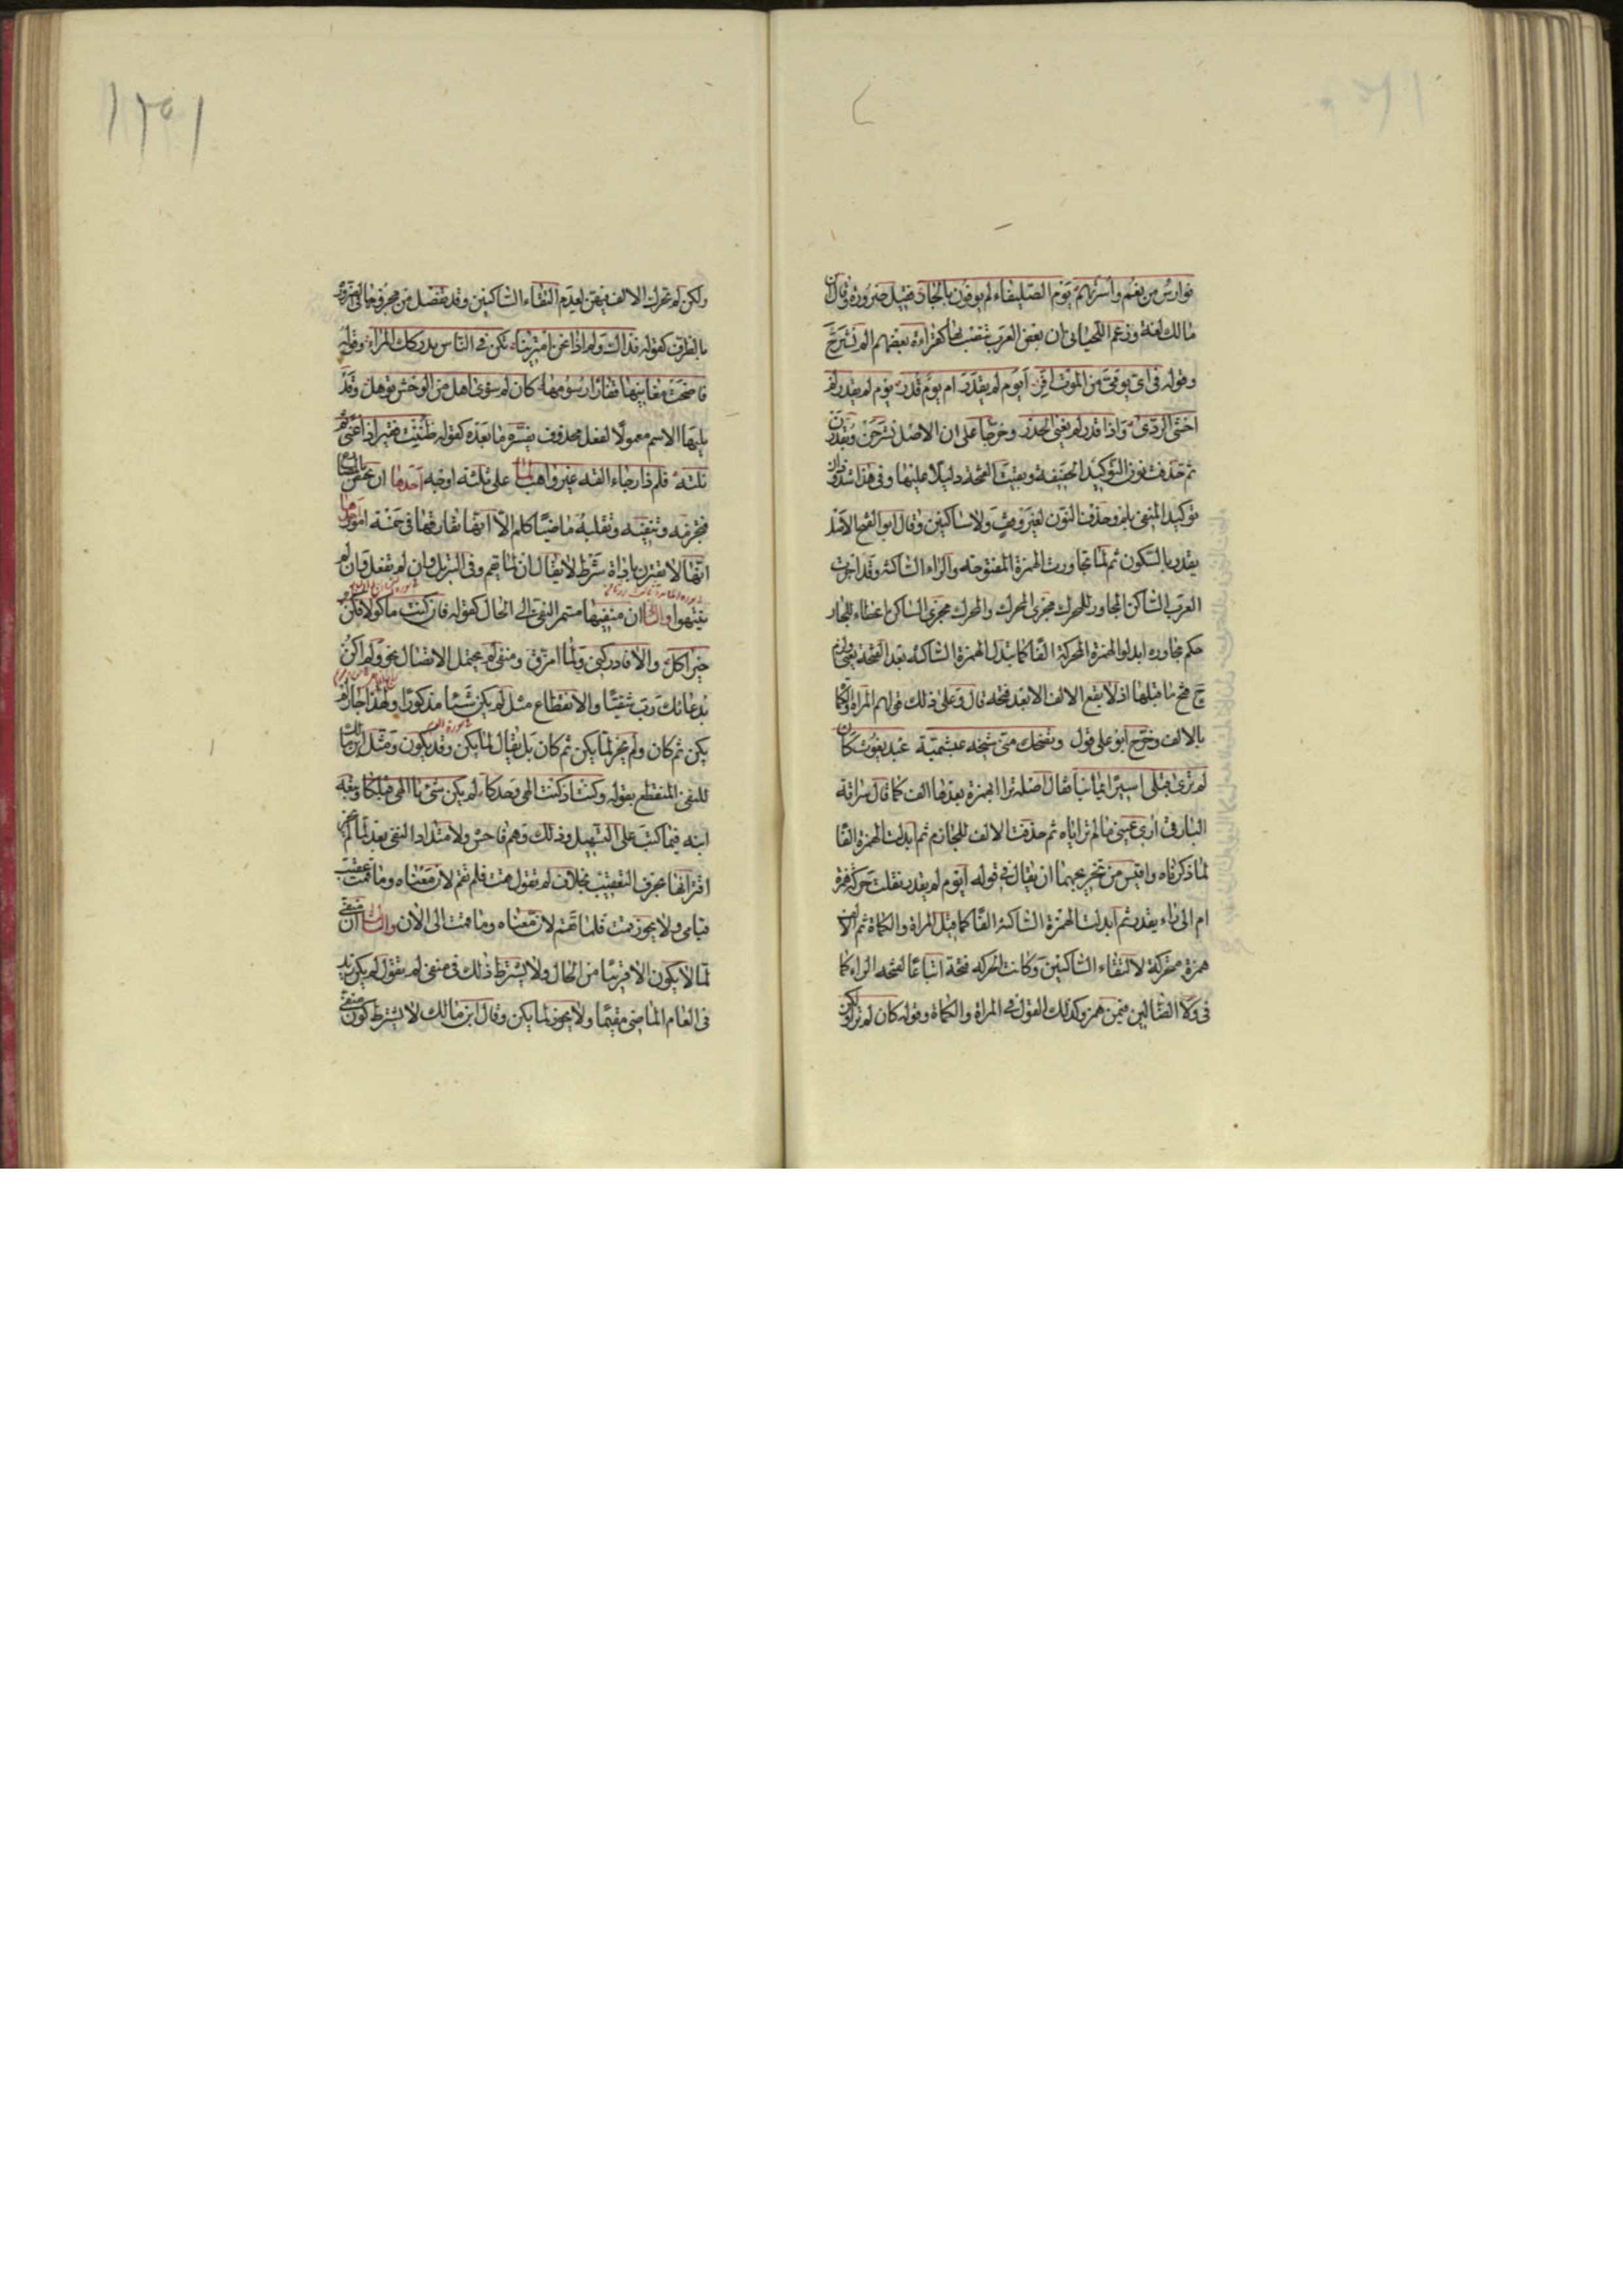 فوارس من نعم واسرتهم يوم الصليفاء لم يوفون بالجار فقيل ضرورة وقال ابن
مالك لغة وزعم اللحياني ان بعض العرب ينصب بها كقراءة بعضهم الم نشرح
وقوله في اي يومي من الموت افر ايوم لم يقدر ام يوم قدر يوم لم يقدر لم
اخش الردى واذا قدر لم يغن الحذر وخرجا على ان الاصل نشرحن ويقدرن
ثم حذفت نون التوكيد الخفيفة وبقيت الفتحة دليلا عليها وفي هذا شذوذان
توكيد المنفي بلم وحذف النون لغير وقف ولا ساكنين وقال ابو الفتح الاصل
يقدر بالسكون ثم لما تجاورت الهمزة المفتوحة والراء الساكنة وقد اجرت
العرب الساكن المجاور للمحرك مجرى المحرك والمحرك مجرى الساكن اعطاء للجار
حكم مجاوره ابدلوا الهمزة المحركة الفا كما تبدل الهمزة الساكنة بعد الفتحة يعني ولزم
ح فتح ما قبلها اذ لا يقع الالف الا بعد فتحة قال وعلى ذلك قولهم المراة والكماة
بالالف وخرج ابو علي قول وتضحك مني شيخة عبشمية عبد يغوث كان
لم ترى قبلي اسيرا يمانيا فقال اصله ترا بهمزة بعدها الف كما قال سراقة
البارقي اري عيني ما لم تراياه ثم حذفت الالف للجازم ثم ابدلت الهمزة الفا
لما ذكرناه واقيس من تخريجهما ان يقال في قوله ايوم لم يقدر نقلت حركة همزة
ام الى راء يقدر ثم ابدلت الهمزة الساكنة الفا كما قيل المراة والكماة ثم الالف
همزة متحركة لالتقاء الساكنين وكانت الحركة فتحة اتباعا لفتحة الراء كما
في ولا الضالين فيمن همز وكذلك القول في المراة والكماة وقوله كان لم ترا ولكن
ولكن لم تحرك الالف فيهن لعدم التقاء الساكنين وقد تفصل من مجزومها في الضرورة
بالظرف كقوله فذاك ولم اذا نحن امترينا تكن في الناس يدركك المراء وقوله
فاضحت مغانيها قفارا رسومها كان لم سوى اهل من الوحش توهل وقد
يليها الاسم معمولا لفعل محذوف يفسره ما بعده كقوله ظننت فقيرا ذا غنى ثم
نلته فلم ذا رجاء القه غير واهب لما على ثلثة اوجه احدها ان تختص بالمضارع
فتجزمه وتنفيه وتقلبه ماضيا كلم الا انها تفارقها في خمسة امور احدها
انها لا تقترن باداة شرط لا يقال ان لما تقم وفي التنزيل وان لم تفعل وان لم
ينتهوا والثاني ان منفيها مستمر النفي الى الحال كقوله فان كنت ماكولا فكن
خير اكل والا فادركني ولما امزق ومنفي لم يحتمل الاتصال نحو ولم اكن
بدعائك رب شقيا والانقطاع مثل لم يكن شيئا مذكورا ولهذا جاز لم
يكن ثم كان ولم يجز لما يكن ثم كان بل يقال لما يكن وقد يكون ومثل ابن مالك
للنفي المنقطع بقوله وكنت اذ كنت الهي وحدكا لم يكن شيء يا الهي قبلكا وتبعه
ابنه فيما كتب على التسهيل وذلك وهم فاحش ولامتداد النفي بعد لما لم يجز
اقترانها بحرف التعقيب بخلاف لم تقول قمت فلم تقم لان معناه وما قمت عقيب
قيامي ولا يجوز قمت فلما تقم لان معناه وما قمت الى الان والثالث ان منفي
لما لا يكون الا قريبا من الحال ولا يشترط ذلك في منفي لم تقول لم يكن زيد
في العام الماضي مقيما ولا يجوز لما يكن وقال ابن مالك لا يشترط كون منفي